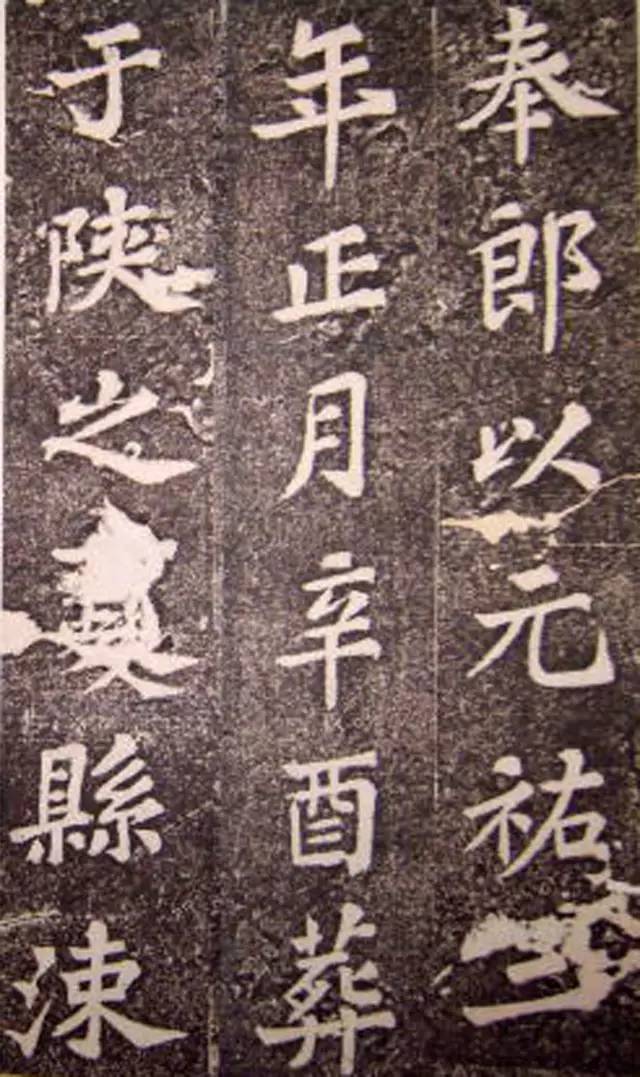 奉郎以元祐
年正月辛酉葬
于陝之夏縣涑